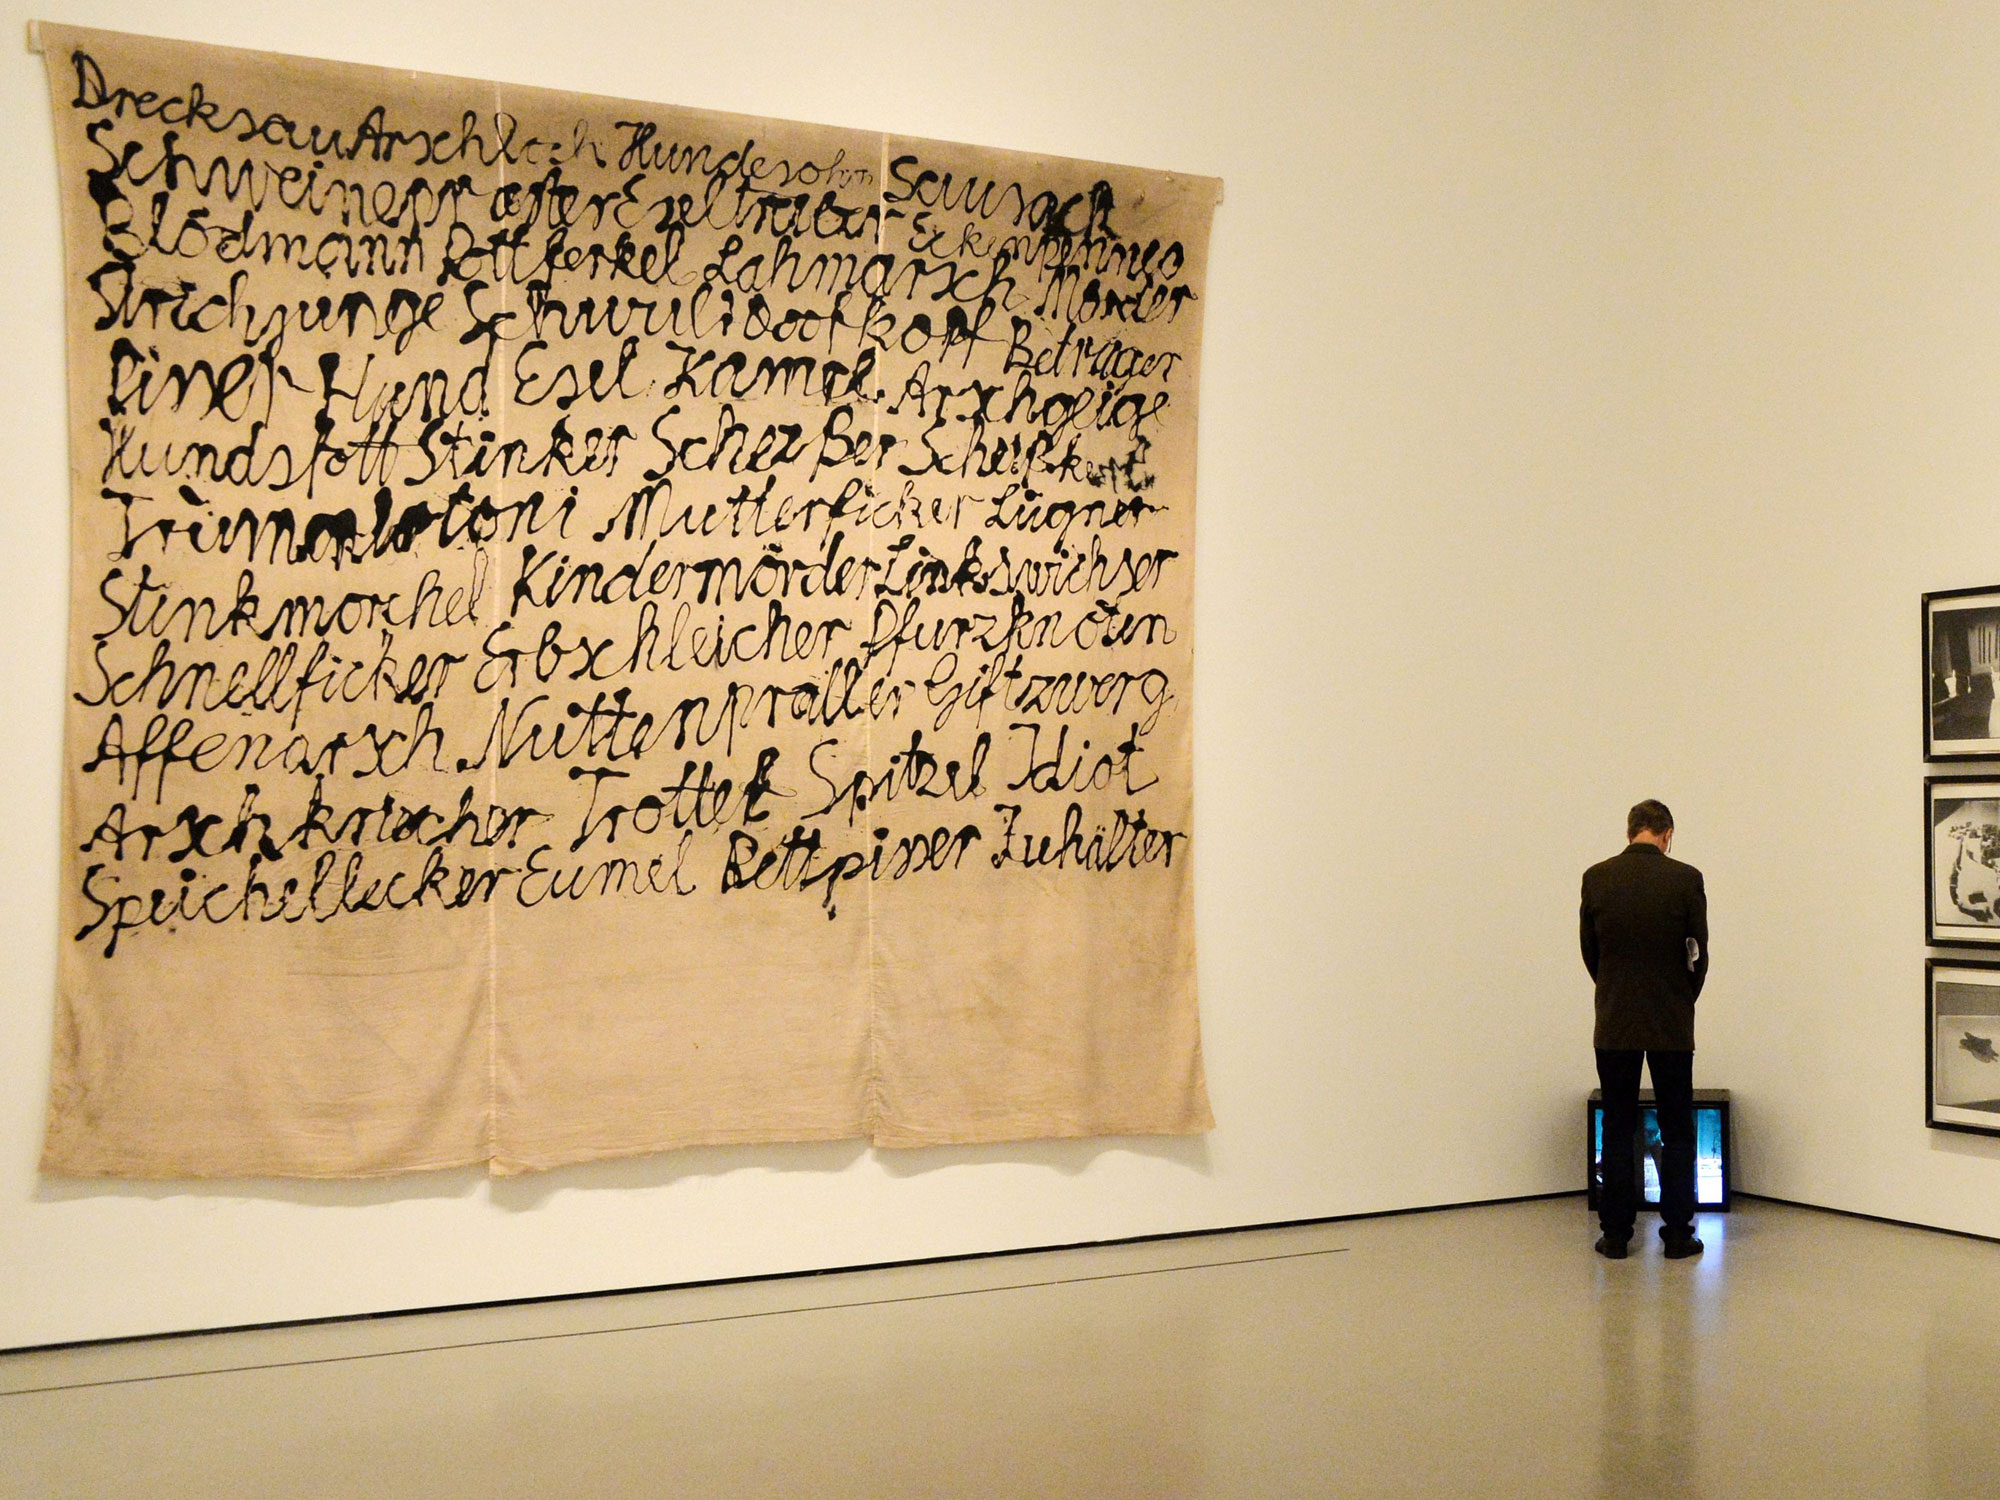 Drecksau Arschloch Hundesohn Sausack
Schweinepriester Eseltreiber Eckenpenner
Blödmann Pottferkel Lahmarsch Mörder
Strichjunge Schwuli Doofkopf Betrüger
Pisser Hund Esel Kamel Arschgeige
Hundsfott Stinker Scheißer Scheißkerl
Mutterficker Lügner
Stinkmorchel Kindermörder Linkswichser
Schnellficker Erbschleicher Pfurzknoten
Affenarsch Nuttenpraller Giftzwerg
Arschkriecher Trottel Spitzel Idiot
Speichellecker Eumel Bettpisser Zuhälter